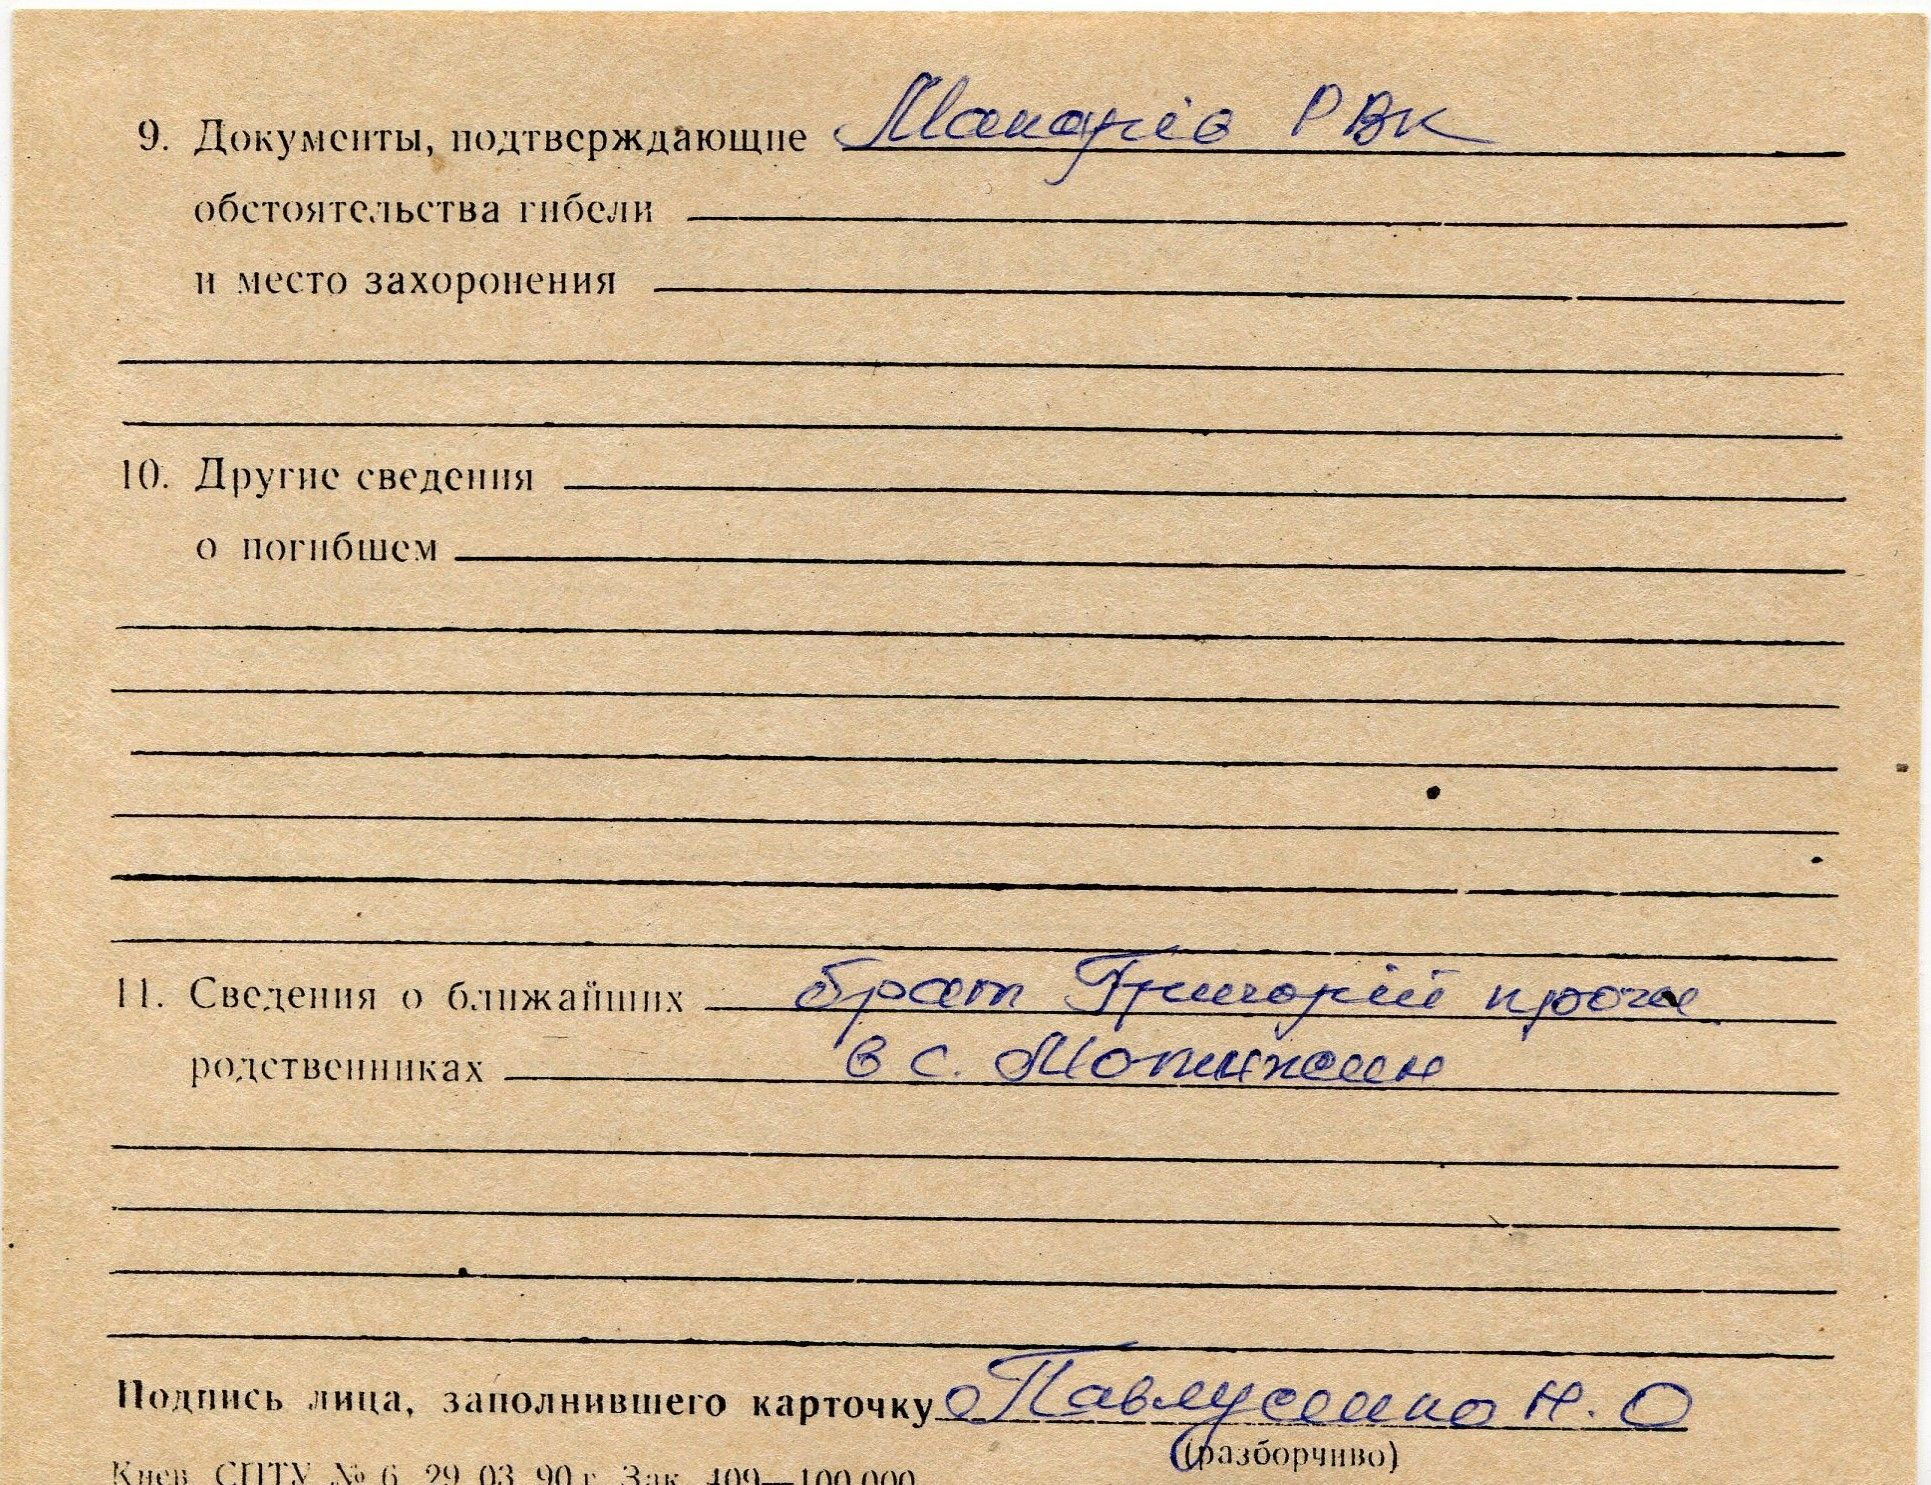 9. Документы, подтверждающие Макарів РВК
обстоятельства гибели
и место захоронения
10. Другие сведения
о погибшем
11. Сведения о ближайших брат Григорій прожи
родственниках в с. Мотижин
Подпись лица, заполнившего карточку Павлусенко Н. О
(разборчиво)
Киев. СПТУ № 6. 29. 03. 90 г. Зак. 409—100.000